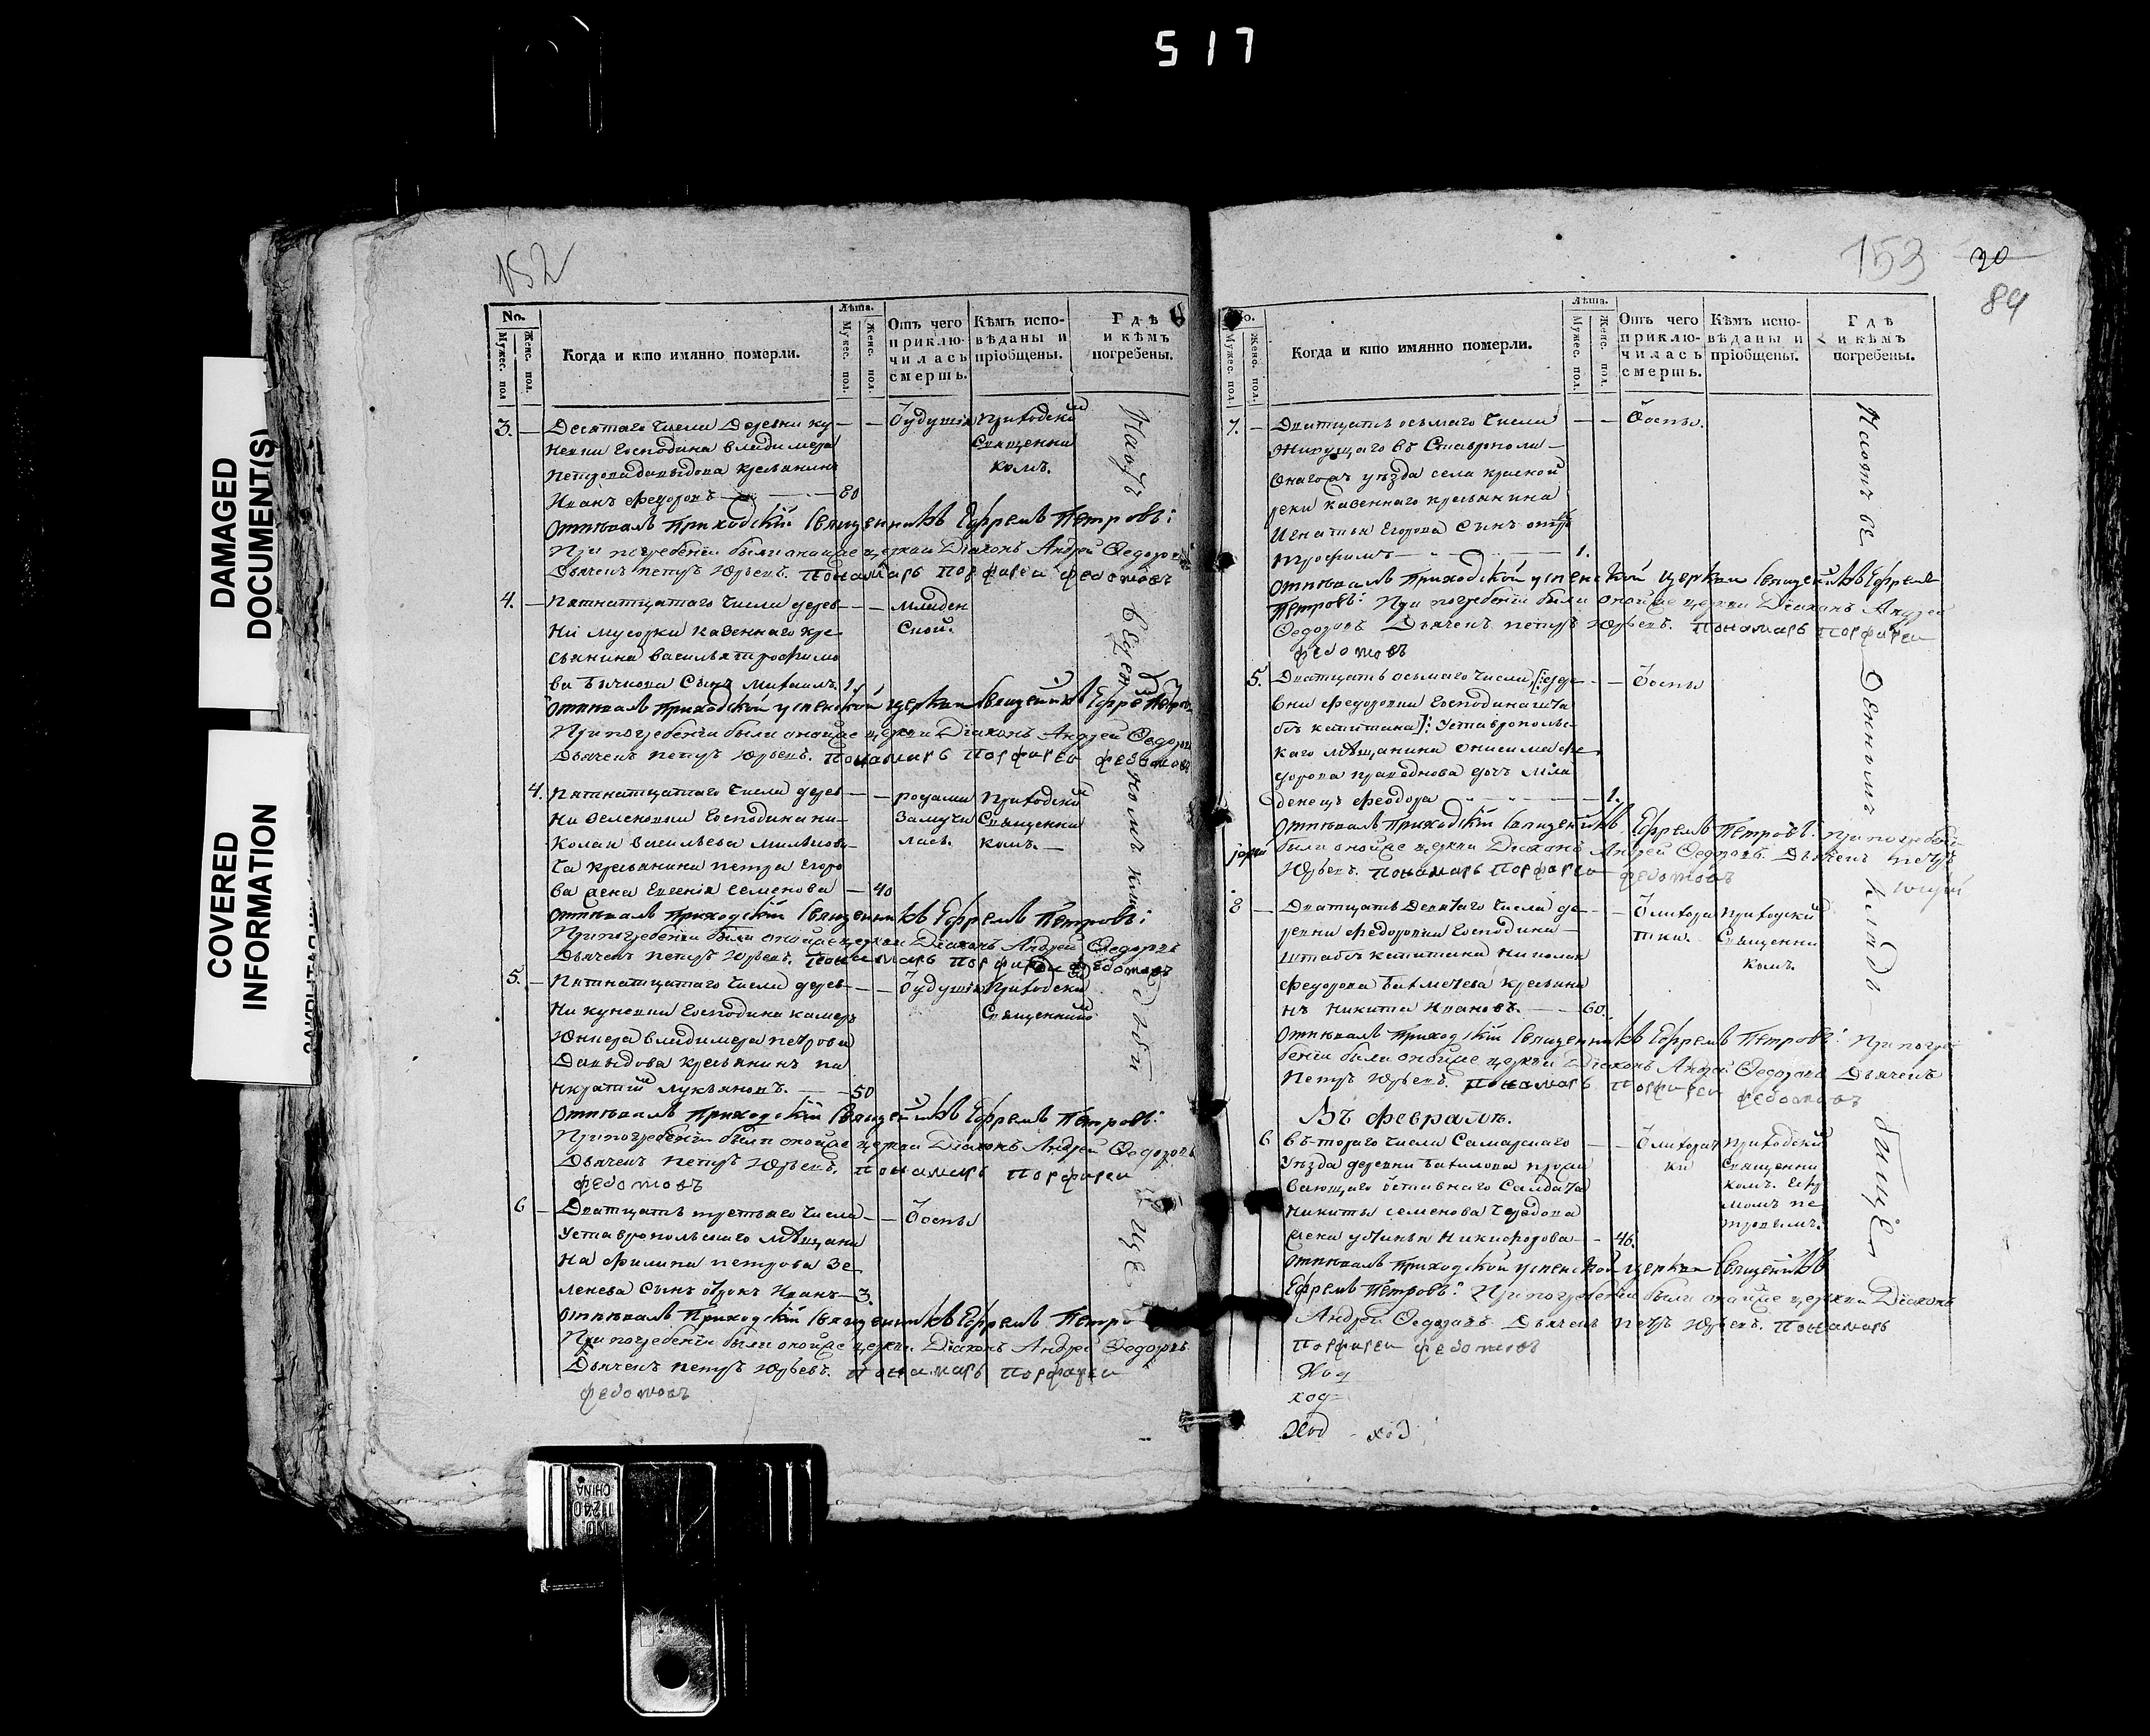 517
DAMAGED
DOCUMENT(S)
COVERED
INFORMATION
152
No.
Мужес. пол
Женс. пол.
Когда и кто имянно померли.
Лѣта.
Мужес. пол.
Женс. пол.
Отъ чего
приклю-
чилась
смерть.
Кѣмъ испо-
вѣданы и
пріобщены.
Гдѣ
и кѣмъ
погребены.
3. Десятаго числа деревни ку
неевки Господина владимера
Петрова давыдова крестьянинъ
Иванъ Федоровъ 80
одушья
Приходским
Священни
комъ.
отпѣвалъ приходскій священникъ Ефремъ Петровъ:
При погребеніи были оной же церкви Діаконъ Андрей Ѳедоровъ
Дьячекъ петръ Юрьевъ. понамарь порфирей федотовъ
4. Пятнатцатаго числа дерев
ни мусорки казеннаго кре
стьянина василья трофимо
ва бычкова сынъ михаилъ. 1.
младен
ской.
отпѣвалъ приходской успенской церкви священникъ Ефремъ Петровъ
При погребеніи были оной же церкви Діаконъ Андрей Ѳедоровъ
Дьячекъ петръ Юрьевъ. понамарь порфирей федотовъ
4. Пятнатцатаго числа дерев
ни зеленовки Господина ни
колая васильева
ча крестьянина петра Егоро
ва жена Евгенія семенова 40
родами
замучи
лась.
приходским
священни
комъ.
отпѣвалъ приходскій священникъ Ефремъ Петровъ:
При погребеніи были оной же церкви Діаконъ Андрей Ѳедоровъ
Дьячекъ петръ Юрьевъ. понамарь порфирей федотовъ
5. Пятнатцатаго числа дерев
ни кунеевки Господина камеръ
Юнкера владимера петрова
Давыдова крестьянинъ па
нкратій лукьяновъ. 50
одушья
приходским
Священником
отпѣвалъ приходскій священникъ Ефремъ Петровъ:
При погребеніи были оной же церкви Діаконъ Андрей Ѳедоровъ
Дьячекъ петръ Юрьевъ. понамарь порфирей
федотовъ
6 Дватцать третьяго числа
ставропольскаго мѣщани
на филипа петрова зе
ленева сынъ отрокъ Иванъ 3.
оспы
отпѣвалъ Приходскій священникъ Ефремъ Петро
При погребеніи были оной же церкви Діаконъ Андрей Ѳедоровъ
Дьячекъ петръ Юрьевъ. понамарь порфирей
федотовъ
153
30
84
No.
Мужес. пол.
Женс. пол.
Когда и кто имянно померли.
Лѣта.
Мужес. пол.
Женс. пол.
Отъ чего
приклю-
чилась
смерть.
Кѣмъ испо-
вѣданы и
пріобщены.
Гдѣ
и кѣмъ
погребены.
На отве
денномъ
кладо
бищѣ
7. Дватцать осьмаго числа
Живущаго въ Ставрополи
онагожъ уѣзда села красной
реки казеннаго крестьянина
Игнатья Егорова сынъ
трофимъ 1.
оспы.
отпѣвалъ приходской успенской церкви священникъ Ефремъ
Петровъ: При погребеніи были оной же церкви Діаконъ Андрей
Ѳедоровъ Дьячекъ петръ Юрьевъ. понамарь порфирей
федотовъ
5. Дватцать осьмаго числа, дере
вни федоровки Господина шта
бъ капитана ставрополь
каго мѣщанина онисима фе
дорова дочь мла
денецъ феодора 1.
оспы
отпѣвалъ приходскій священникъ Ефремъ Петровъ: При погребеніи
были оной же церкви Діаконъ Андрей Ѳедоровъ. Дьячекъ петръ
Юрьевъ. понамарь порфирей федотовъ
8 Дватцать девятаго числа де
ревни федоровки Господина
штабсъ капитана николая
федорова бахметева крестьяни
нъ Никита Ивановъ. 60.
лихора
тки.
приходским
священни
комъ.
отпѣвалъ приходскій священникъ Ефремъ Петровъ: При погре
беніи были оной же церкви Діаконъ Андрей Ѳедоровъ Дьячекъ
Петръ Юрьевъ. понамарь порфирей федотовъ
Въ февралѣ.
6 втораго числа Самарскаго
уѣзда деревни прожи
вающаго отставнаго салдата
никиты семенова
жена устинья Никифорова 46.
лихорат
ки
приходским
священни
комъ. Ефре
момъ пе
тровымъ.
отпѣвалъ приходской успенской церкви священникъ
Ефремъ Петровъ: При погребеніи были оной же церкви Діаконъ
Андрей Ѳедоровъ Дьячекъ петръ Юрьевъ. понамарь
порфирей федотовъ
Ход
ход
Ход ход
NO.
11240
CHINA